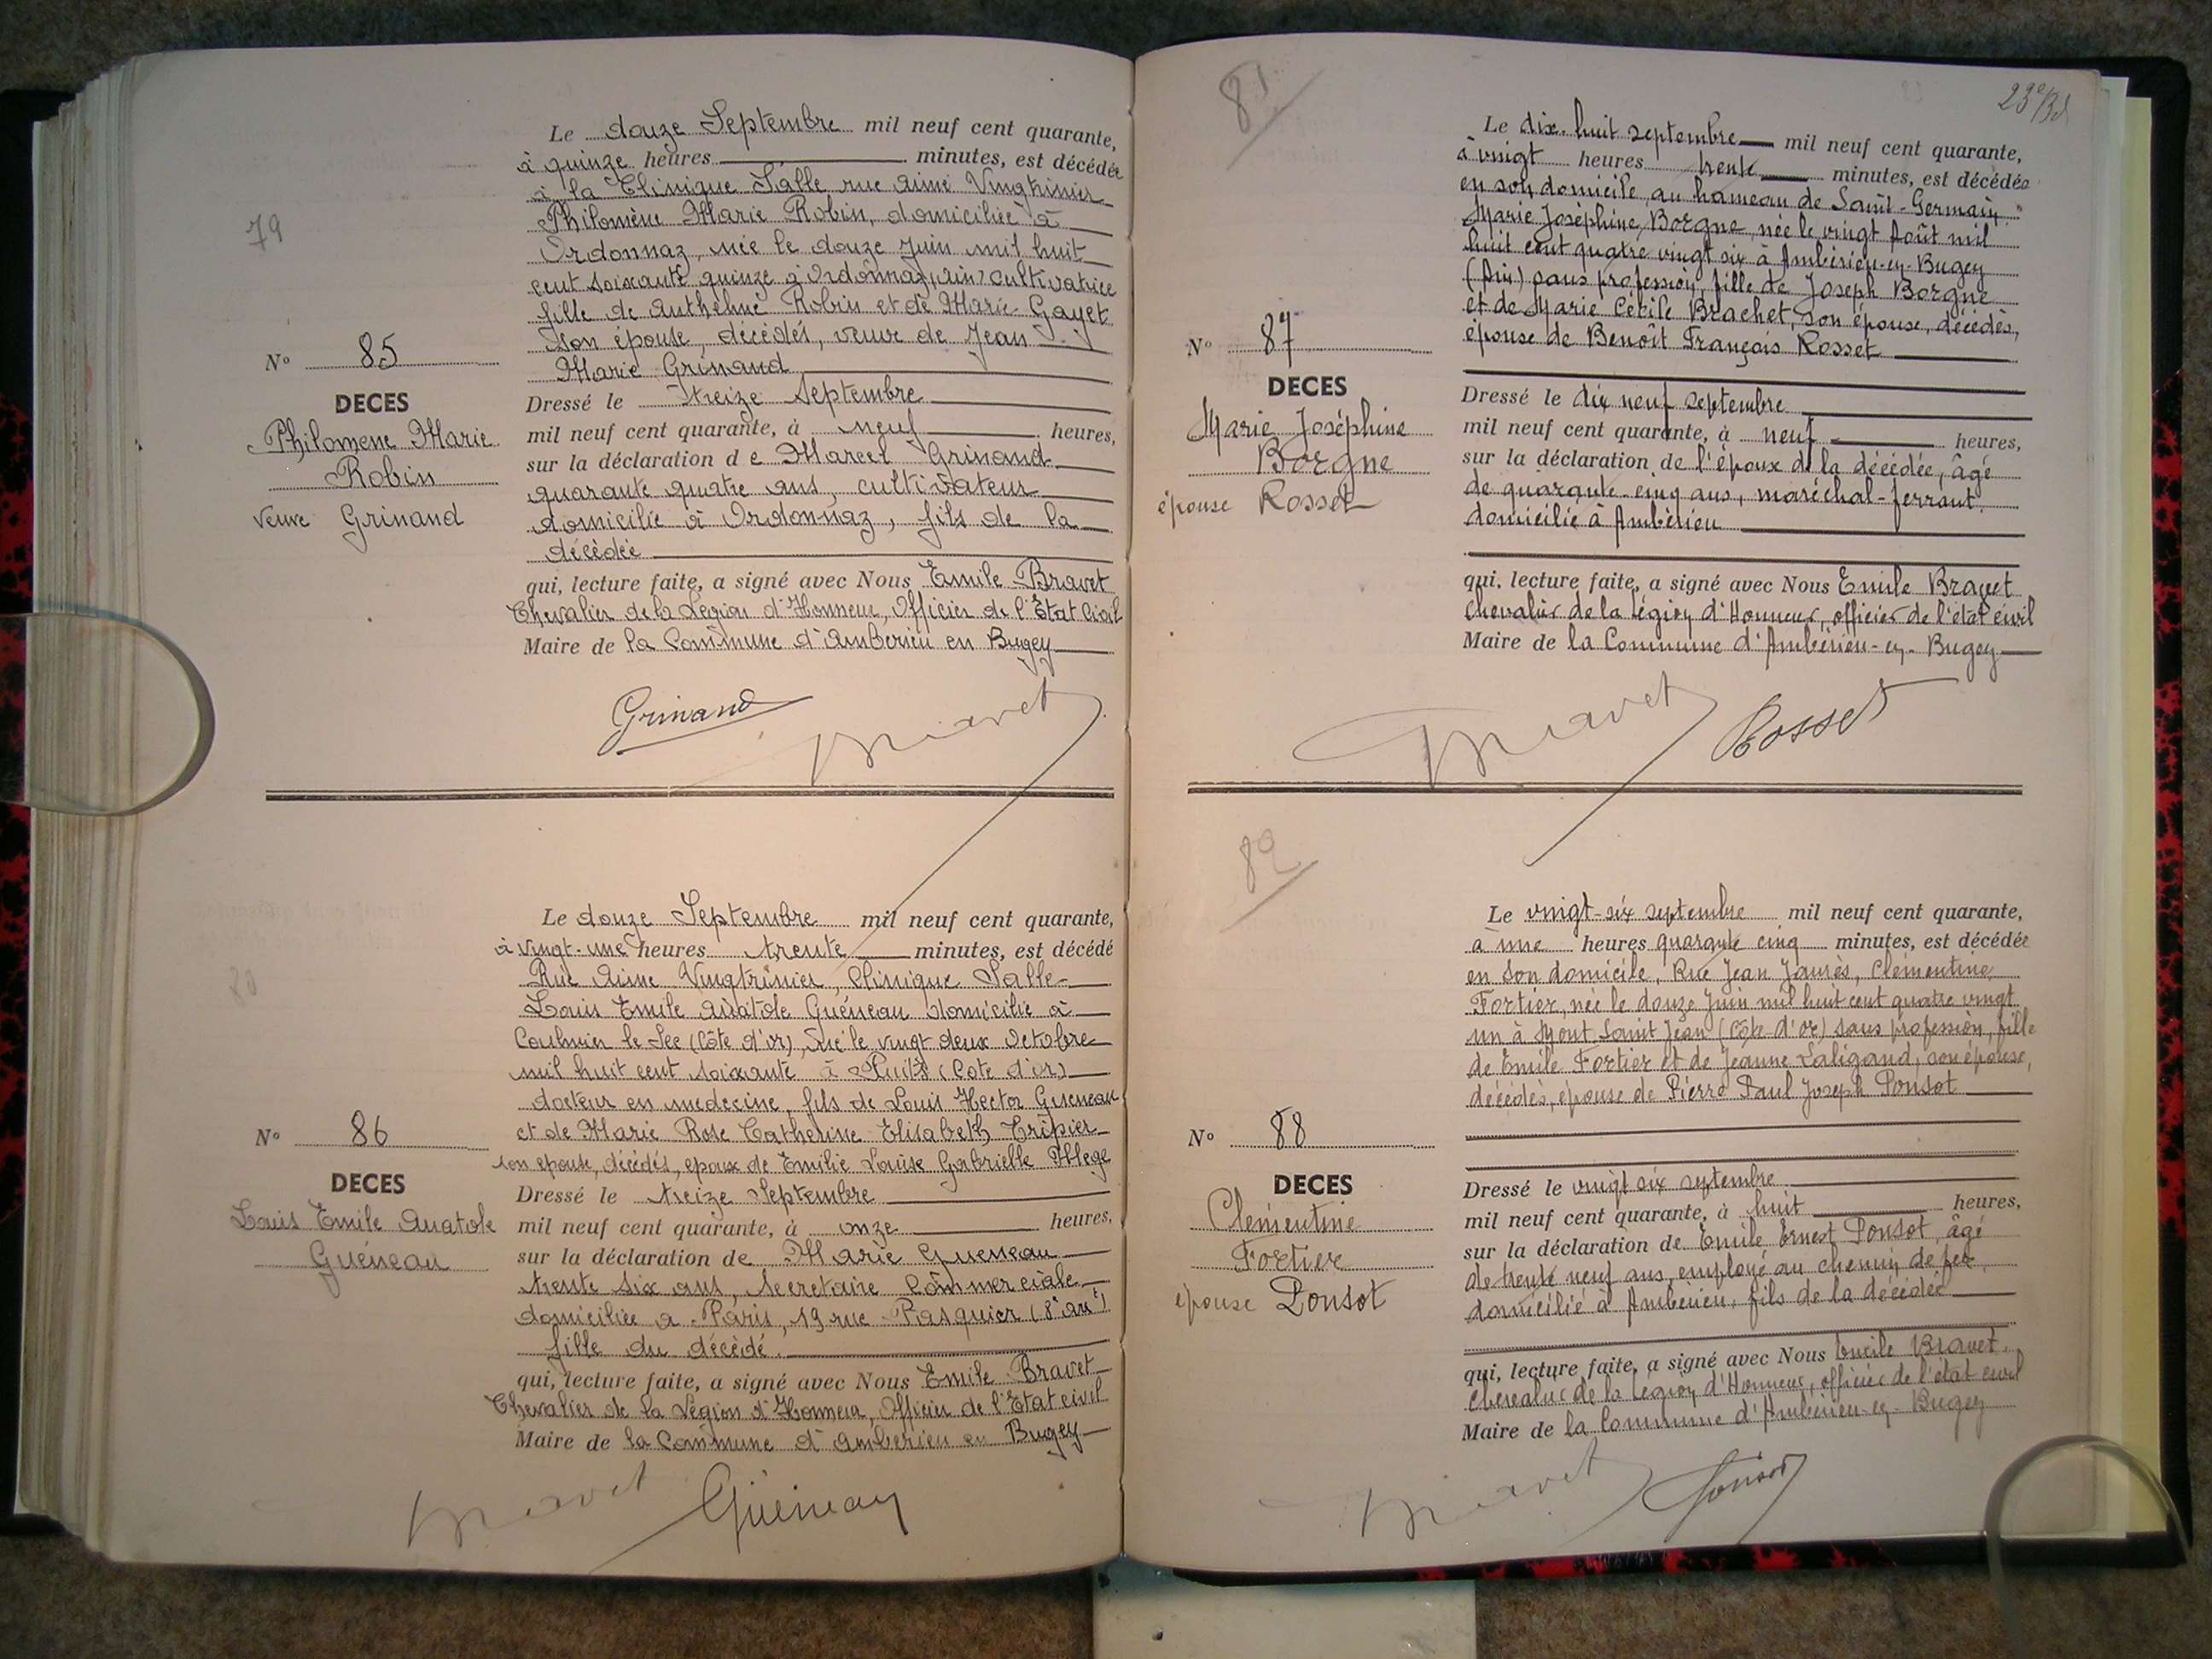 79
Le douze Septembre mil neuf cent quarante,
à quinze heures minutes, est décédée
à la Clinique Salle rue Aimé Vingtrinier
Philomène Marie Robin, domiciliée à
Ordonnaz, née le douze Juin mil huit
cent soixante quinze à Ordonnaz, (Ain) cultivatrice
fille de Anthelme Robin et de Marie Gayet
son épouse, décédés, veuve de Jean
Marie Grinand
No 85
DECES
Philomene Marie
Robin
Veuve Grinand
Dressé le treize Septembre
mil neuf cent quarante, à neuf heures,
sur la déclaration de Marcel Grinand
quarante quatre ans, cultivateur
domicilié à Ordonnaz, fils de la
décédée
qui, lecture faite, a signé avec Nous Emile Bravet
Chevalier de la Légion d'Honneur, Officier de l'Etat Civil
Maire de la Commune d'Amberieu en Bugey
Grinand Bravet
Le douze Septembre mil neuf cent quarante,
à vingt-une heures trente minutes, est décédé
Rue Aimé Vingtrinier, Clinique Salle
Louis Emile Anatole Guéneau domicilié à
Coulmier le Sec (Côte d'or), né le vingt deux Octobre
mil huit cent soixante à Puits (Cote d'or)
docteur en medecine, fils de Louis Hector Gueneau
et de Marie Rose Catherine Elisabeth Tripier
son epouse, décédés, epoux de Emilie Louise Gabrielle Mege
No 86
DECES
Louis Emile Anatole
Guéneau
Dressé le treize Septembre
mil neuf cent quarante, à onze heures,
sur la déclaration de Marie Gueneau
trente six ans, Secretaire Commerciale
domiciliée a Paris, 19 rue Pasquier (8e arrt)
fille du décédé.
qui, lecture faite, a signé avec Nous Emile Bravet
Chevalier de la Légion d'Honneur, Officier de l'Etat civil
Maire de la Commune d'Amberieu en Bugey
Bravet Guéneau
81
Le dix-huit septembre mil neuf cent quarante,
à vingt heures trente minutes, est décédée
en son domicile, au hameau de Saint-Germain
Marie Joséphine Borgne, née le vingt Août mil
huit cent quatre vingt six à Ambérieu-en-Bugey
(Ain) sans profession, fille de Joseph Borgne
et de Marie Cécile Brachet, son épouse, décédés,
épouse de Benoît François Rosset
No 87
DECES
Marie Joséphine
Borgne
épouse Rosset
Dressé le dix neuf septembre
mil neuf cent quarante, à neuf heures,
sur la déclaration de l'époux de la décédée, âgé
de quarante-cinq ans, maréchal-ferrant
domicilié à Ambérieu
qui, lecture faite, a signé avec Nous Emile Bravet
Chevalier de la Légion d'Honneur, officier de l'état civil
Maire de la Commune d'Ambérieu-en-Bugey
Bravet Rosset
82
Le vingt-six septembre mil neuf cent quarante,
à une heures quarante cinq minutes, est décédée
en son domicile, Rue Jean Jaurès, Clémentine
Fortier, née le douze Juin mil huit cent quatre vingt
un à Mont Saint Jean (Côte d'or) sans profession, fille
de Emile Fortier et de Jeanne Laligand, son épouse,
décédés, épouse de Pierre Paul Joseph Ponsot
No 88
DECES
Clémentine
Fortier
épouse Ponsot
Dressé le vingt six septembre
mil neuf cent quarante, à huit heures,
sur la déclaration de Emile Ernest Ponsot, âgé
de trente neuf ans, employé au chemin de fer
domicilié à Ambérieu, fils de la décédée
qui, lecture faite, a signé avec Nous Emile Bravet,
Chevalier de la Légion d'Honneur, officier de l'état civil
Maire de la Commune d'Ambérieu-en-Bugey
Bravet Ponsot